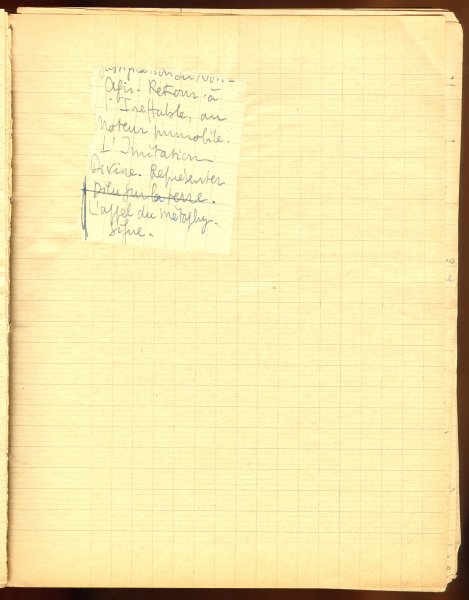 Agir. Retour à
l'Ineffable, au
Moteur immobile.
L'Imitation
Divine. Représenter
Dieu sur la terre.
L'appel du métaphy-
sique.